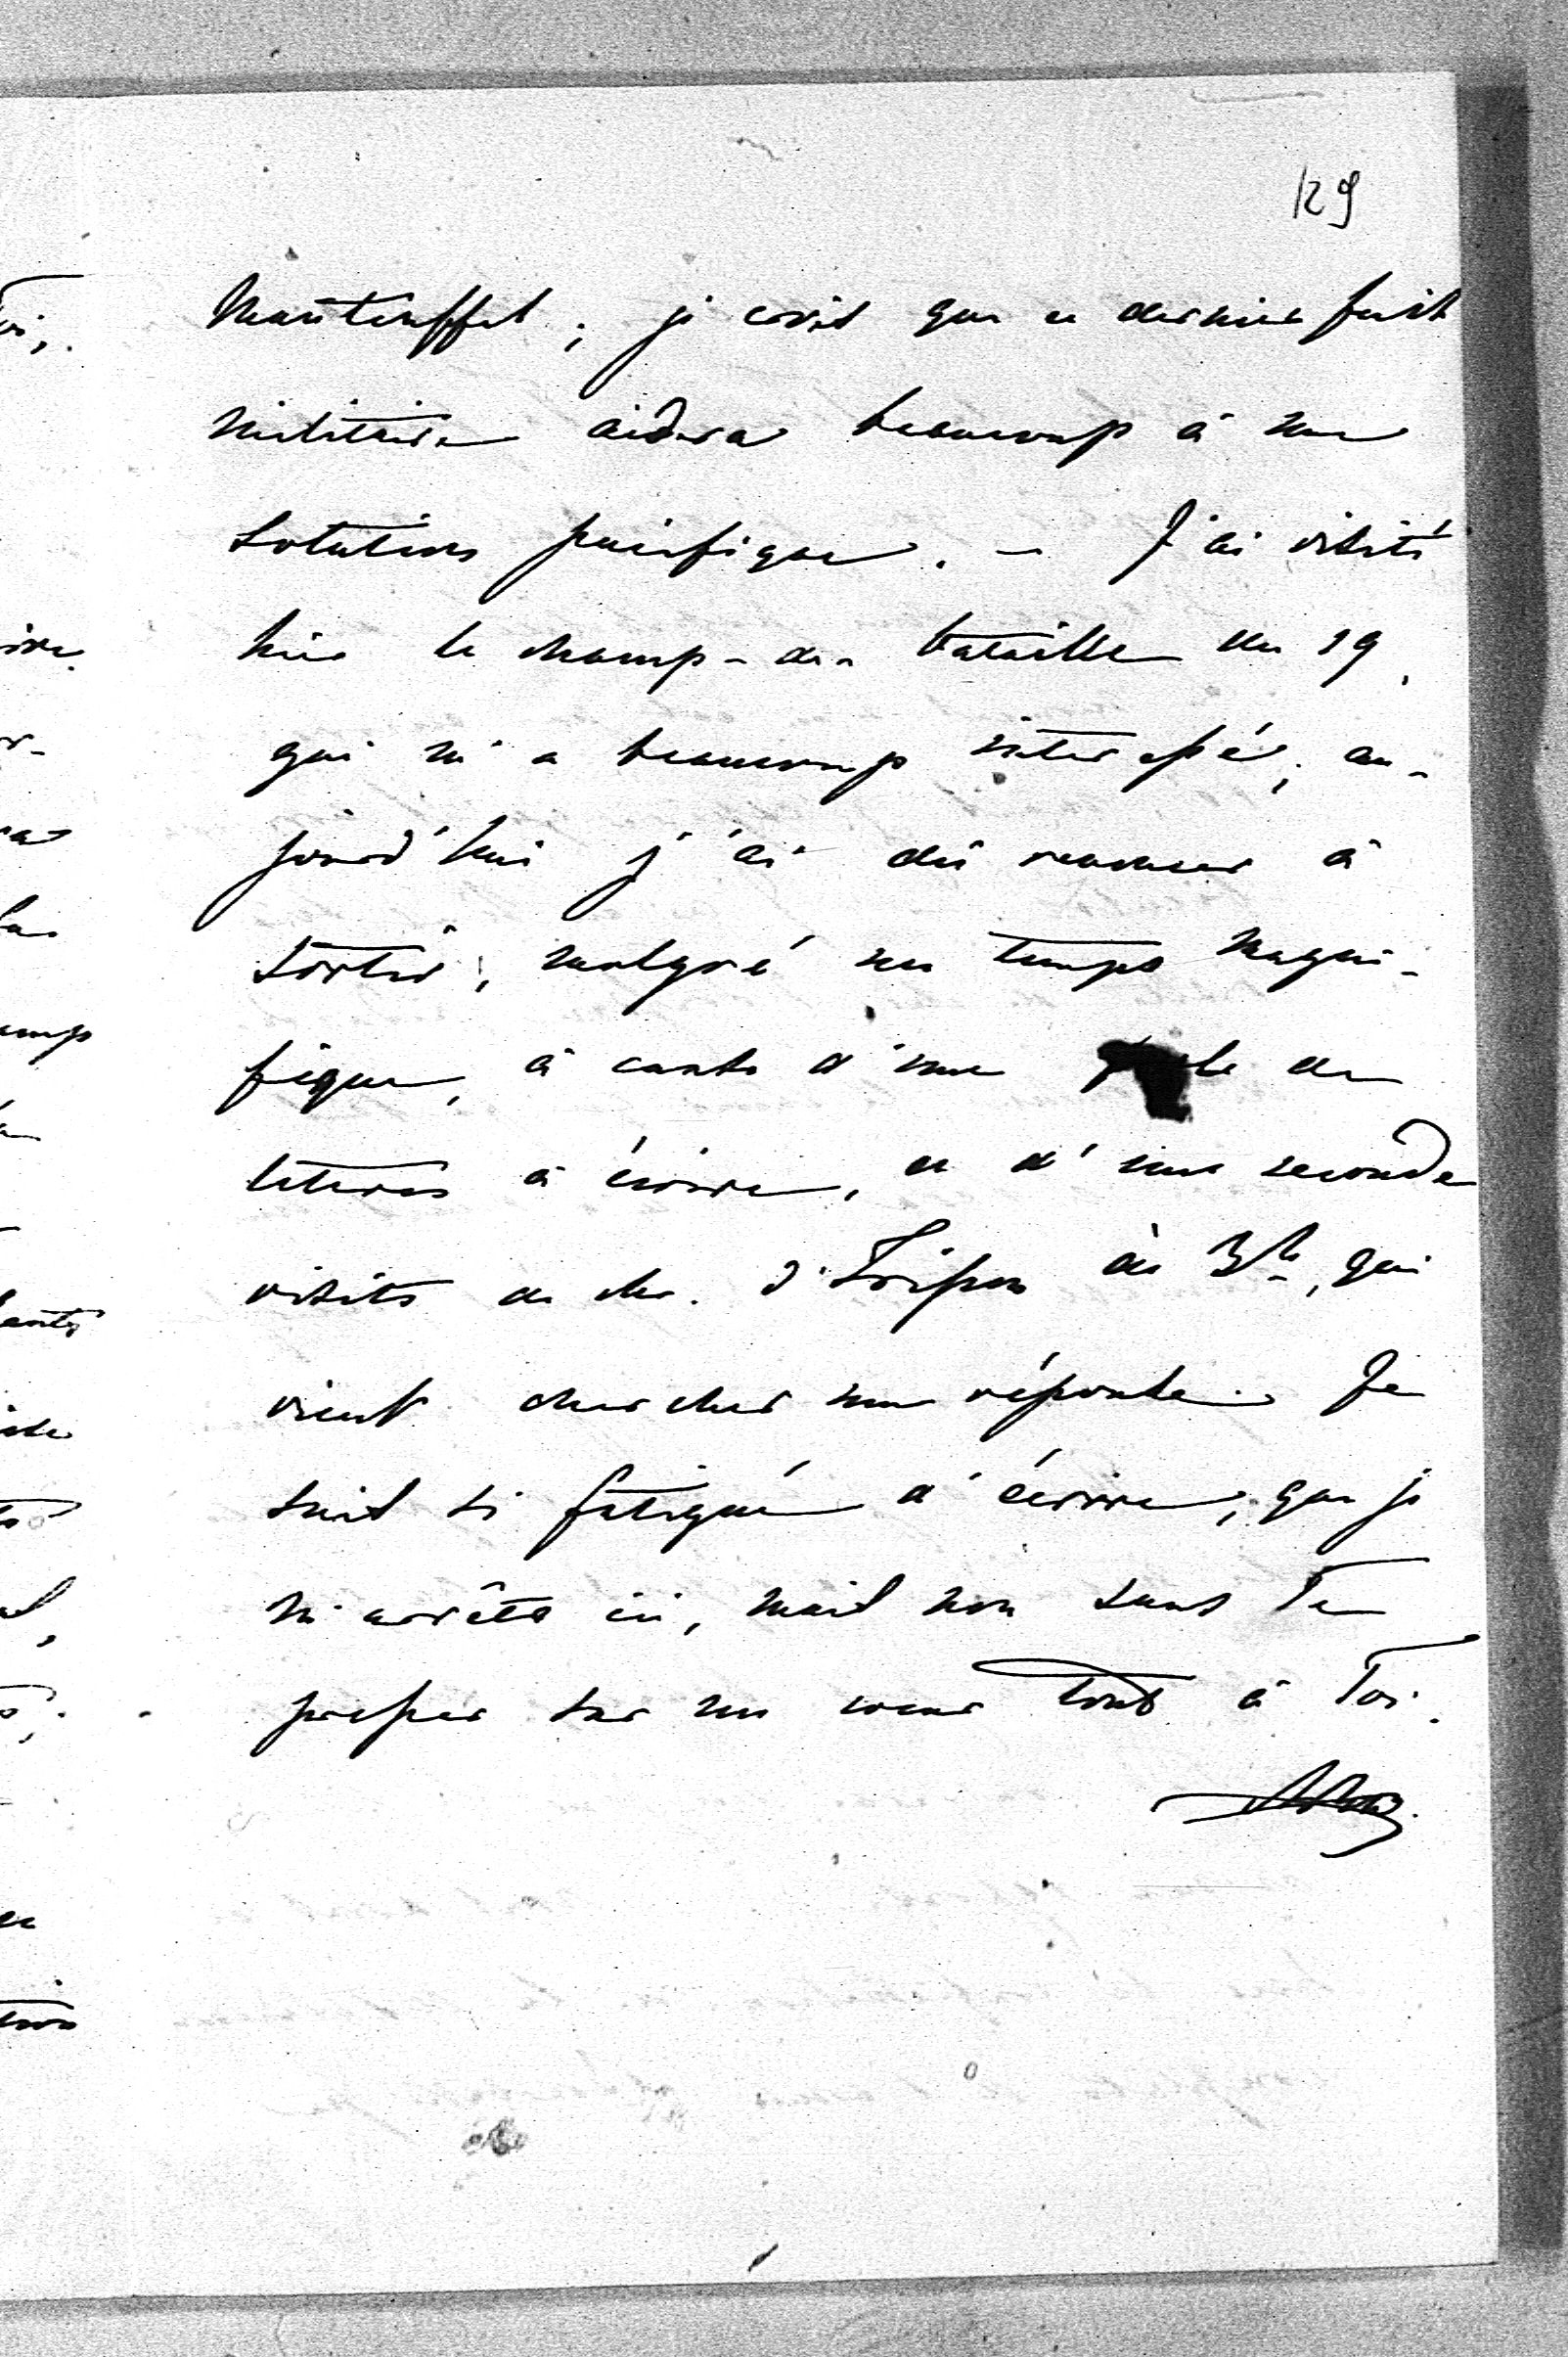 129
Manteuffel; je crois que ce dernier fait
militaire aidera beaucoup à une
solution pacifique. – J'ai visité
hier le champ-de-bataille du 19,
qui m'a beaucoup interessé; au-
jourd'hui j'ai dû renoncer à
sortir, malgré un temps magni-
fique, à cause d'une de
lettres à écrire, et d'une seconde
visite de Mr. d'Irisson à 3h, qui
vient chercher une réponse. Je
suis si fatigué d'écrire, que je
m'arrête ici, mais non sans Te
presser sur un coeur tout à Toi.